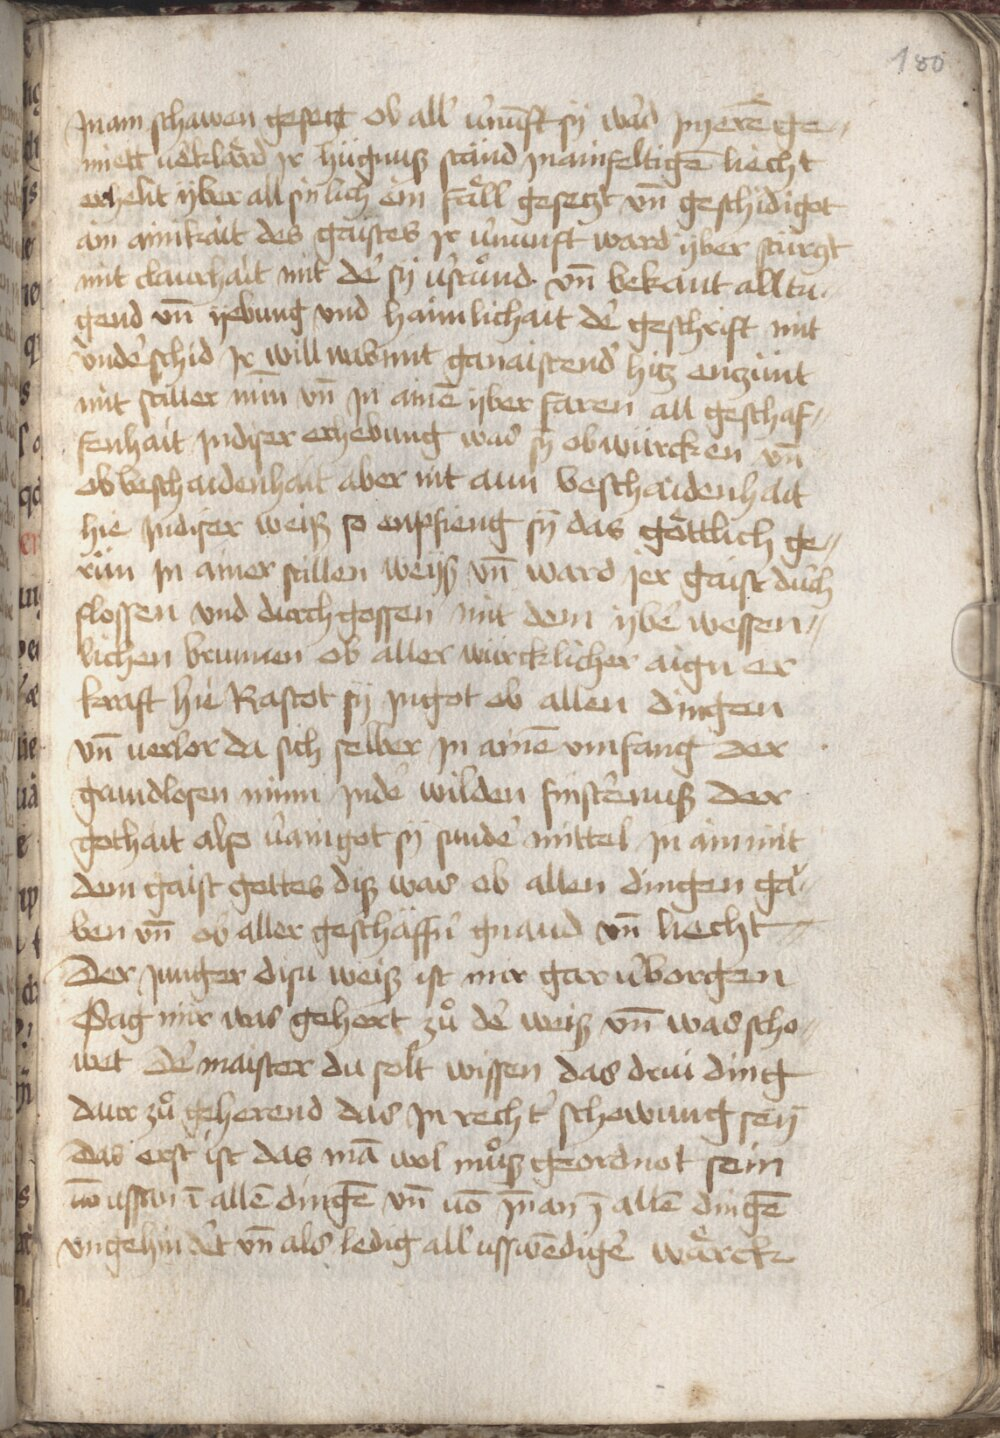 180
In ain schawen gesettt ob all v̉nu̅ft sy wa̓d Inere̅ ge-
miett ue̓klärd Ir hügnuß stånd In ainfeltige̅ liecht
erhelit yber all sinlich ein fäll gesetzt vn̅ geschidiget
an ainikait des gaistes Ir v̓nunft ward yber stürtzt
mit claurhait mit de̓ sy v̓stůnd vn̅ bekant all tu-
gend vn̅ yebung vnd haimlichait de̓ geschrift mit
vnde̓schid Ir will was mit ganaistend̓ hitz enzünt
mit stiller min̅ vn̅ In aine̅ yber faren all geschaf-
fenhait In diser erhebung was sy ob würcken vn̅
ob beschaidenhait aber nit aun beschaidenhait
hie In diser weiß so enpfieng sy̅ das göttlich ge-
rün In ainer stillen weyß vn̅ ward Jer gaist du̓ch
flossen vnd durchgossen mit dem ybe̓ wessen-
lichen brunnen ob aller würcklicher aigner
kraft hie Rastet sy In got ob allen dingen
vn̅ uerlor da sich selber In aine̅ vmfang der
grundlosen minn In de̓ wilden finste̓nuß der
gothait also v̓ainget sy sunde̓ mittel In ain mit
dem gaist gottes diß was ob allen dingen ga-
ben vn̅ ob aller geschäffn̓ gnaud vn̅ liecht
Der Junger disu weiß ist mir gar v̓borgen
Sag mir was gehert zů de̓ weiß vn̅ was scho-
wet de̓ maister du solt wissen das drui ding
daur zů geherend das In recht̓ schowung sey
Das erst ist das ma̅ wol můß geordnot sein
uo̅ ussan i̅ alle̅ dinge̅ vn̅ uo̅ Inan i̅ alle̅ dinge̅
vngehinde̓t vn̅ als ledig all̓ usswe̅dige̓ wärck